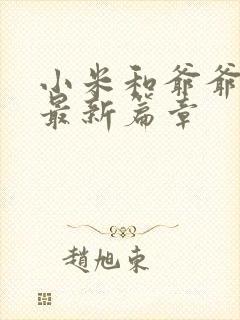 小米和爷爷
最新篇章
趙旭東